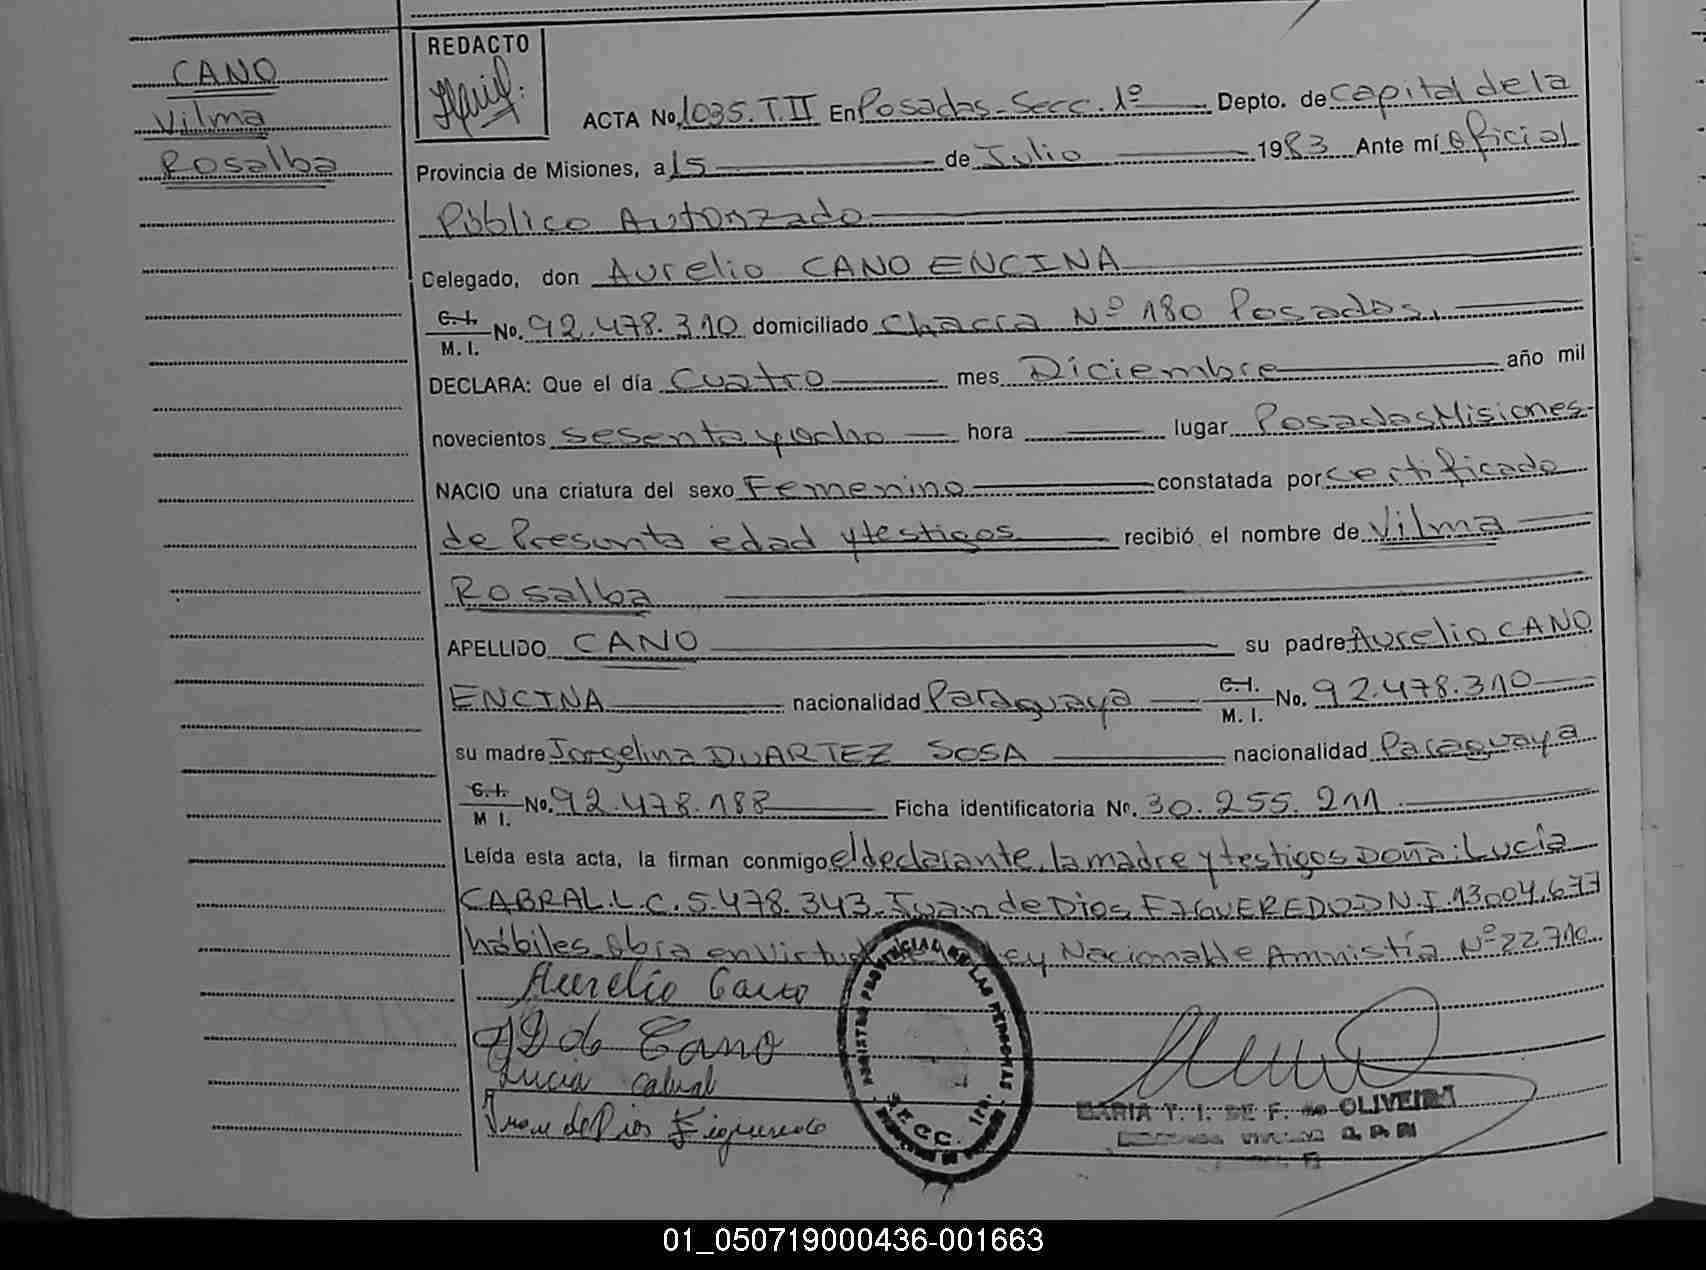 CANO
Vilma
Rosalba
REDACTO
ACTA No. 1035. T. II En Posadas - Secc. 1º Depto. de Capital de la
Provincia de Misiones, a 15 de Julio 1983 Ante mí Oficial
Público Autorizado
Delegado, don Aurelio CANO ENCINA
C.I.
M.I. No. 92.478.310 domiciliado Chacra Nº 180 Posadas.
DECLARA: Que el día Cuatro mes Diciembre año mil
novecientos sesenta y ocho hora lugar Posadas Misiones
NACIO una criatura del sexo Femenino constatada por certificado
de Presunta edad y testigos recibió el nombre de Vilma
Rosalba
APELLIDO CANO su padre Aurelio CANO
ENCINA nacionalidad Paraguaya C.I. M.I. No. 92.478.310
su madre Jorgelina DUARTEZ SOSA nacionalidad Paraguaya
C.I. M I. No. 92.478.188 Ficha identificatoria No. 30.255.211
Leída esta acta, la firman conmigo el declarante, la madre y testigos Doña: Lucía
CABRAL L.C. 5.478.343. Juan de Dios FIGUEREDO D.N.I. 13.004.677
hábiles. Obra en Virtud Ley Nacional de Amnistía Nº 22.710
Aurelio Cano
J D de Cano
Lucia Cabral
Juan de Dios Figueredo
REGISTRO PROVINCIAL DE LAS PERSONAS
SECC. 1ra.
MARIA T. I. DE F. de OLIVEIRA
01_050719000436-001663